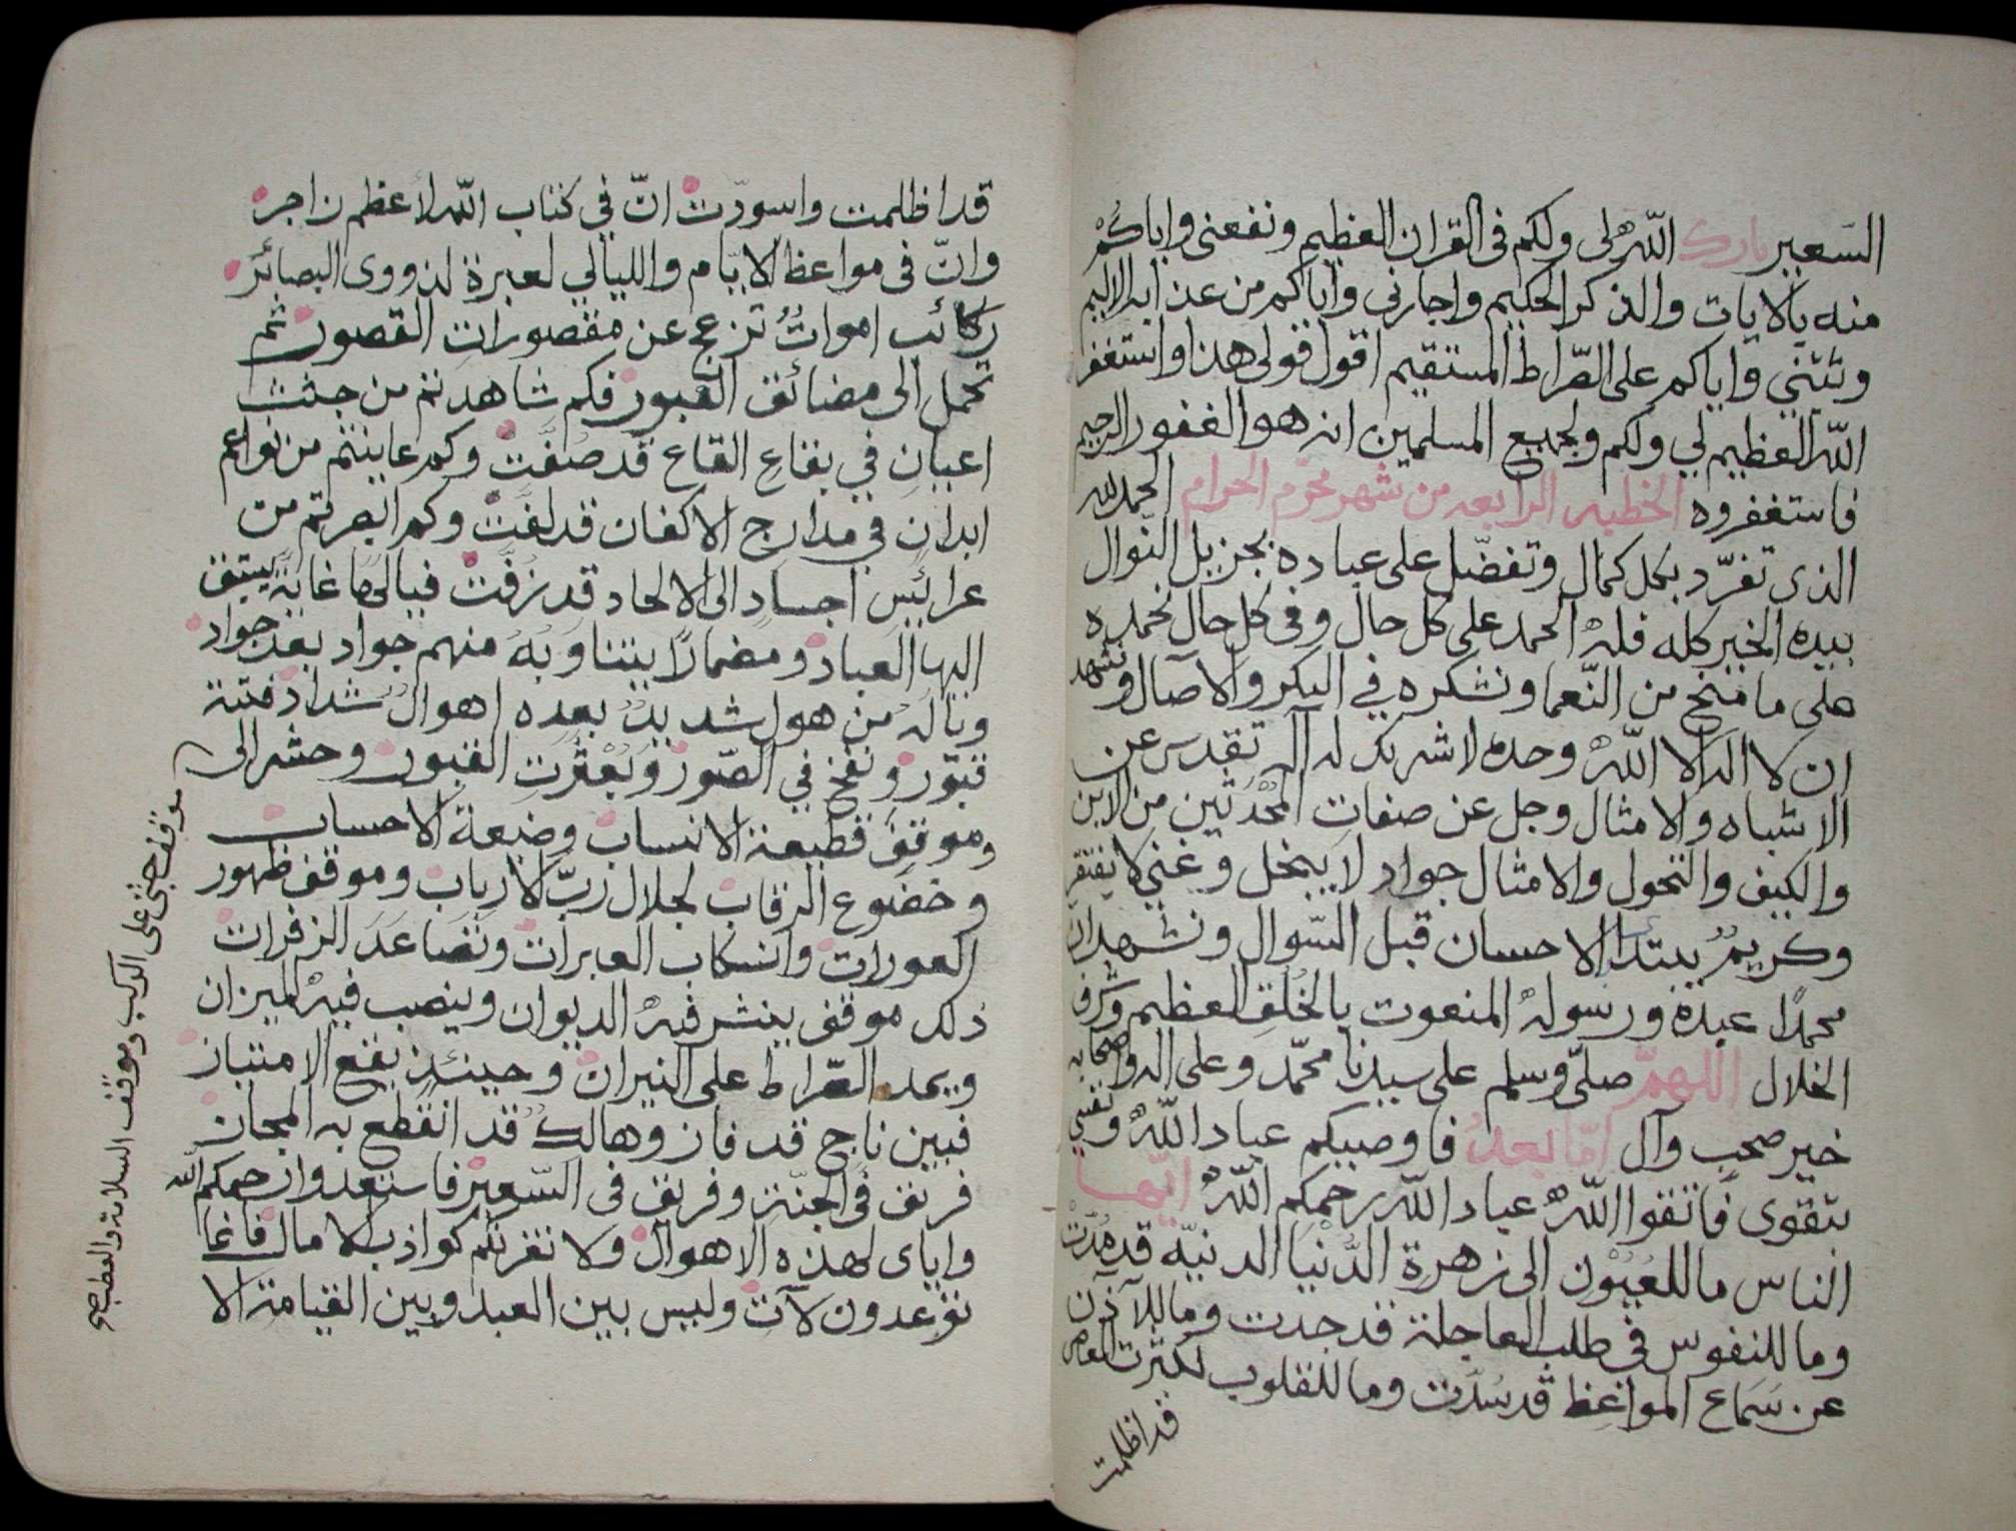 السعير بارك الله لى ولكم فى القران العظيم ونفعنى واياكمْ
منه بالايات والذكر الحكيم واجارنى واياكم من عذابه الاليم
وثبتني واياكم على الصّراط المستقيم اقول قولى هذا واستغفر
الله العظيم لي ولكم ولجميع المسلمين انه هو الغفور الرحيم
فاستغفروه الخطبه الرابعه من شهر محرّم الحرام الحمد لله
الذى تفرّد بكل كمال وتفضّل على عباده بجزيل النوال
بيده الخير كله فلهُ الحمد على كل حال وفى كل حال نحمده
على ما منح من النّعما ونشكره في البكر والآصال ونشهد
ان لا اله الا اللهُ وحده لا شريك له اله تقدس عن
الاشباه والامثال وجل عن صفات المُحْدَثين من الاين
والكيف والتحول والامثال جواد لا يبخل وغني لا يفتقر
وكريمٌ يبتدا الاحسان قبل السّوال ونشهد ان
محمدًا عبده ورسولهُ المنعوت بالخُلقِ العظيم وشرف
الخلال اللهمّ صلّى وسلم على سيدنا محمّد وعلى اله واصحابه
خير صحبٍ وآل امّا بعدُ فاوصيكم عباد اللهُ ونفسي
بتقوى فاتقوا اللهُ عباد الله رحمكم اللهُ ايّها
الناس ما للعُيُوْن الى زهرة الدُّنْيَا الدنيّه قد مُدّتْ
وما للنفوس فى طلب العاجلة قد جدت وما للآذن
عن سَمَاع المواعظ قد سُدَّت وما للقلوب لكثرت المعاصى
قد اظلمت
قد اظلمت واسودّت انّ في كتاب الله لاعظم زاجر
وانّ فى مواعظ الايّام والليالي لعبرة لذووى البصائر
ركائب امواتٌ تزعج عن مقصوراتِ القصور ثم
تحمل الى مضائق القبور فكم شاهدتم من جثث
اعيان في بقاع القاع قد صُفّت وكم عاينتم من نواعم
ابدان في مدارج الاكفان قد لفّت وكم ابصرتم من
عرائسِ اجساد الى الالحاد قد زفّت فيا لها غايةً يستبق
اليها العباد ومضمارًا يتناوبهُ منهم جواد بعد جواد
وياله من هول شديدٌ بعده اهوال شداد فتنة
قبور ونفخ في الصّور وبُعْثرت القبور وحشر الى
موقف جثى على الركب وموقف السلامة والعطب صح
وموقف قطيعة الانساب وضيعة الاحساب
وخضوع الرقاب لجلال ربّ الارباب وموقف ظهور
العورات وانسكاب العبرات وتصاعد الزفرات
ذلك موقف ينشر فيهُ الديوان وينصب فيهُ الميزان
ويمد الصّراط على النيران وحينئذ يقع الامتياز
فبين ناج قد فاز وهالك قد انقطع به المجاز
فريق فى الجنّة وفريق فى السّعير فاستعدوا رحمكم الله
واياى لهذه الاهوال ولا تغرنكم كواذب الامال فانما
توعدون لآت وليس بين العبد وبين القيامة الا